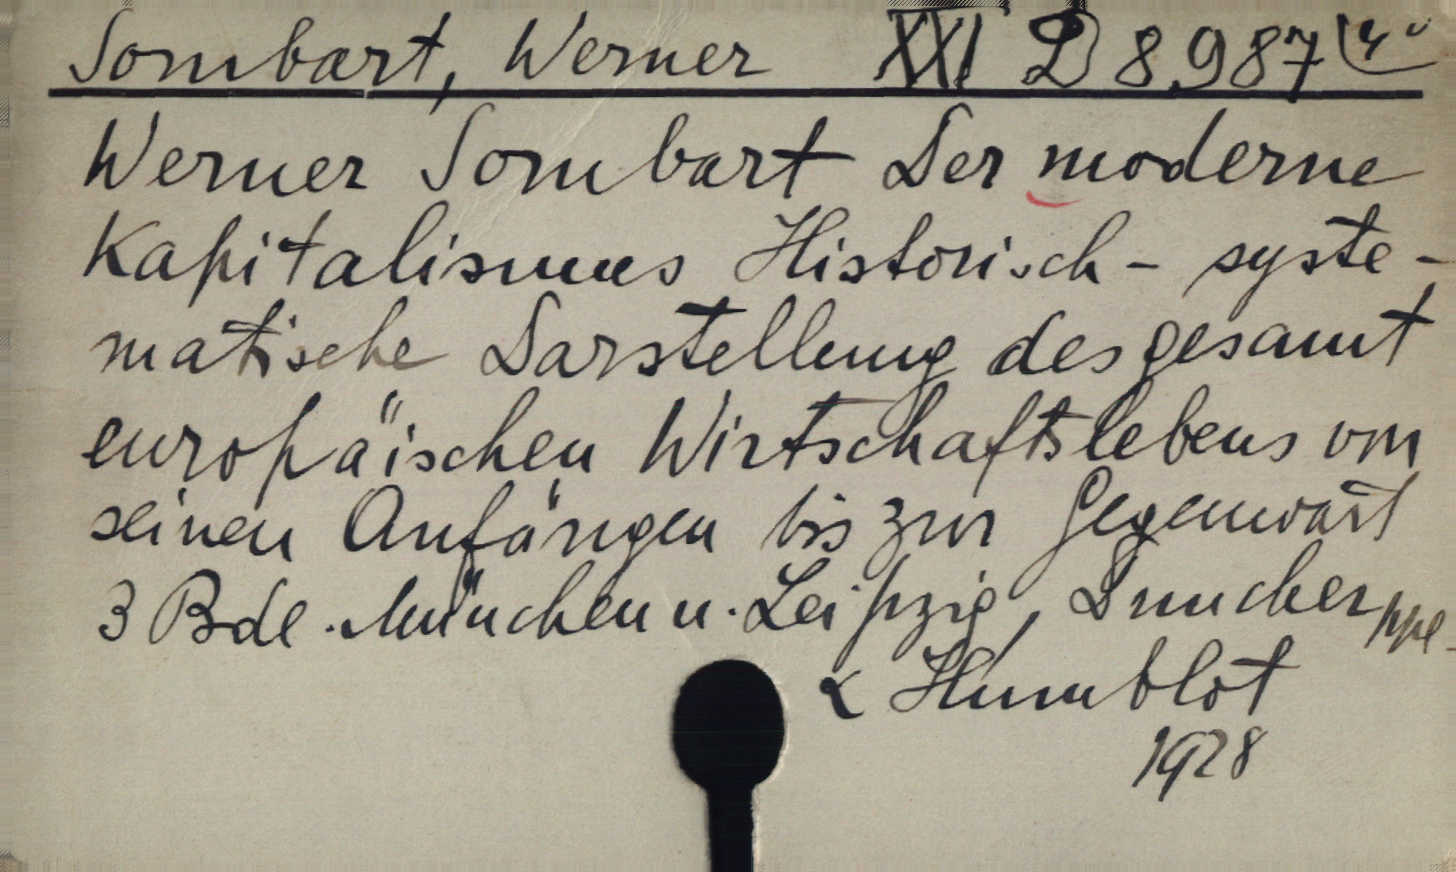 Sombart, Werner XXI D 8,987 4°
Werner Sombart Der moderne
Kapitalismus Historisch - syste-
matische Darstellung des gesamt
europäischen Wirtschaftslebens von
seinen Anfängen bis zur Gegenwart
3 Bde. München u. Leipzig, Duncker
& Humblot
1928